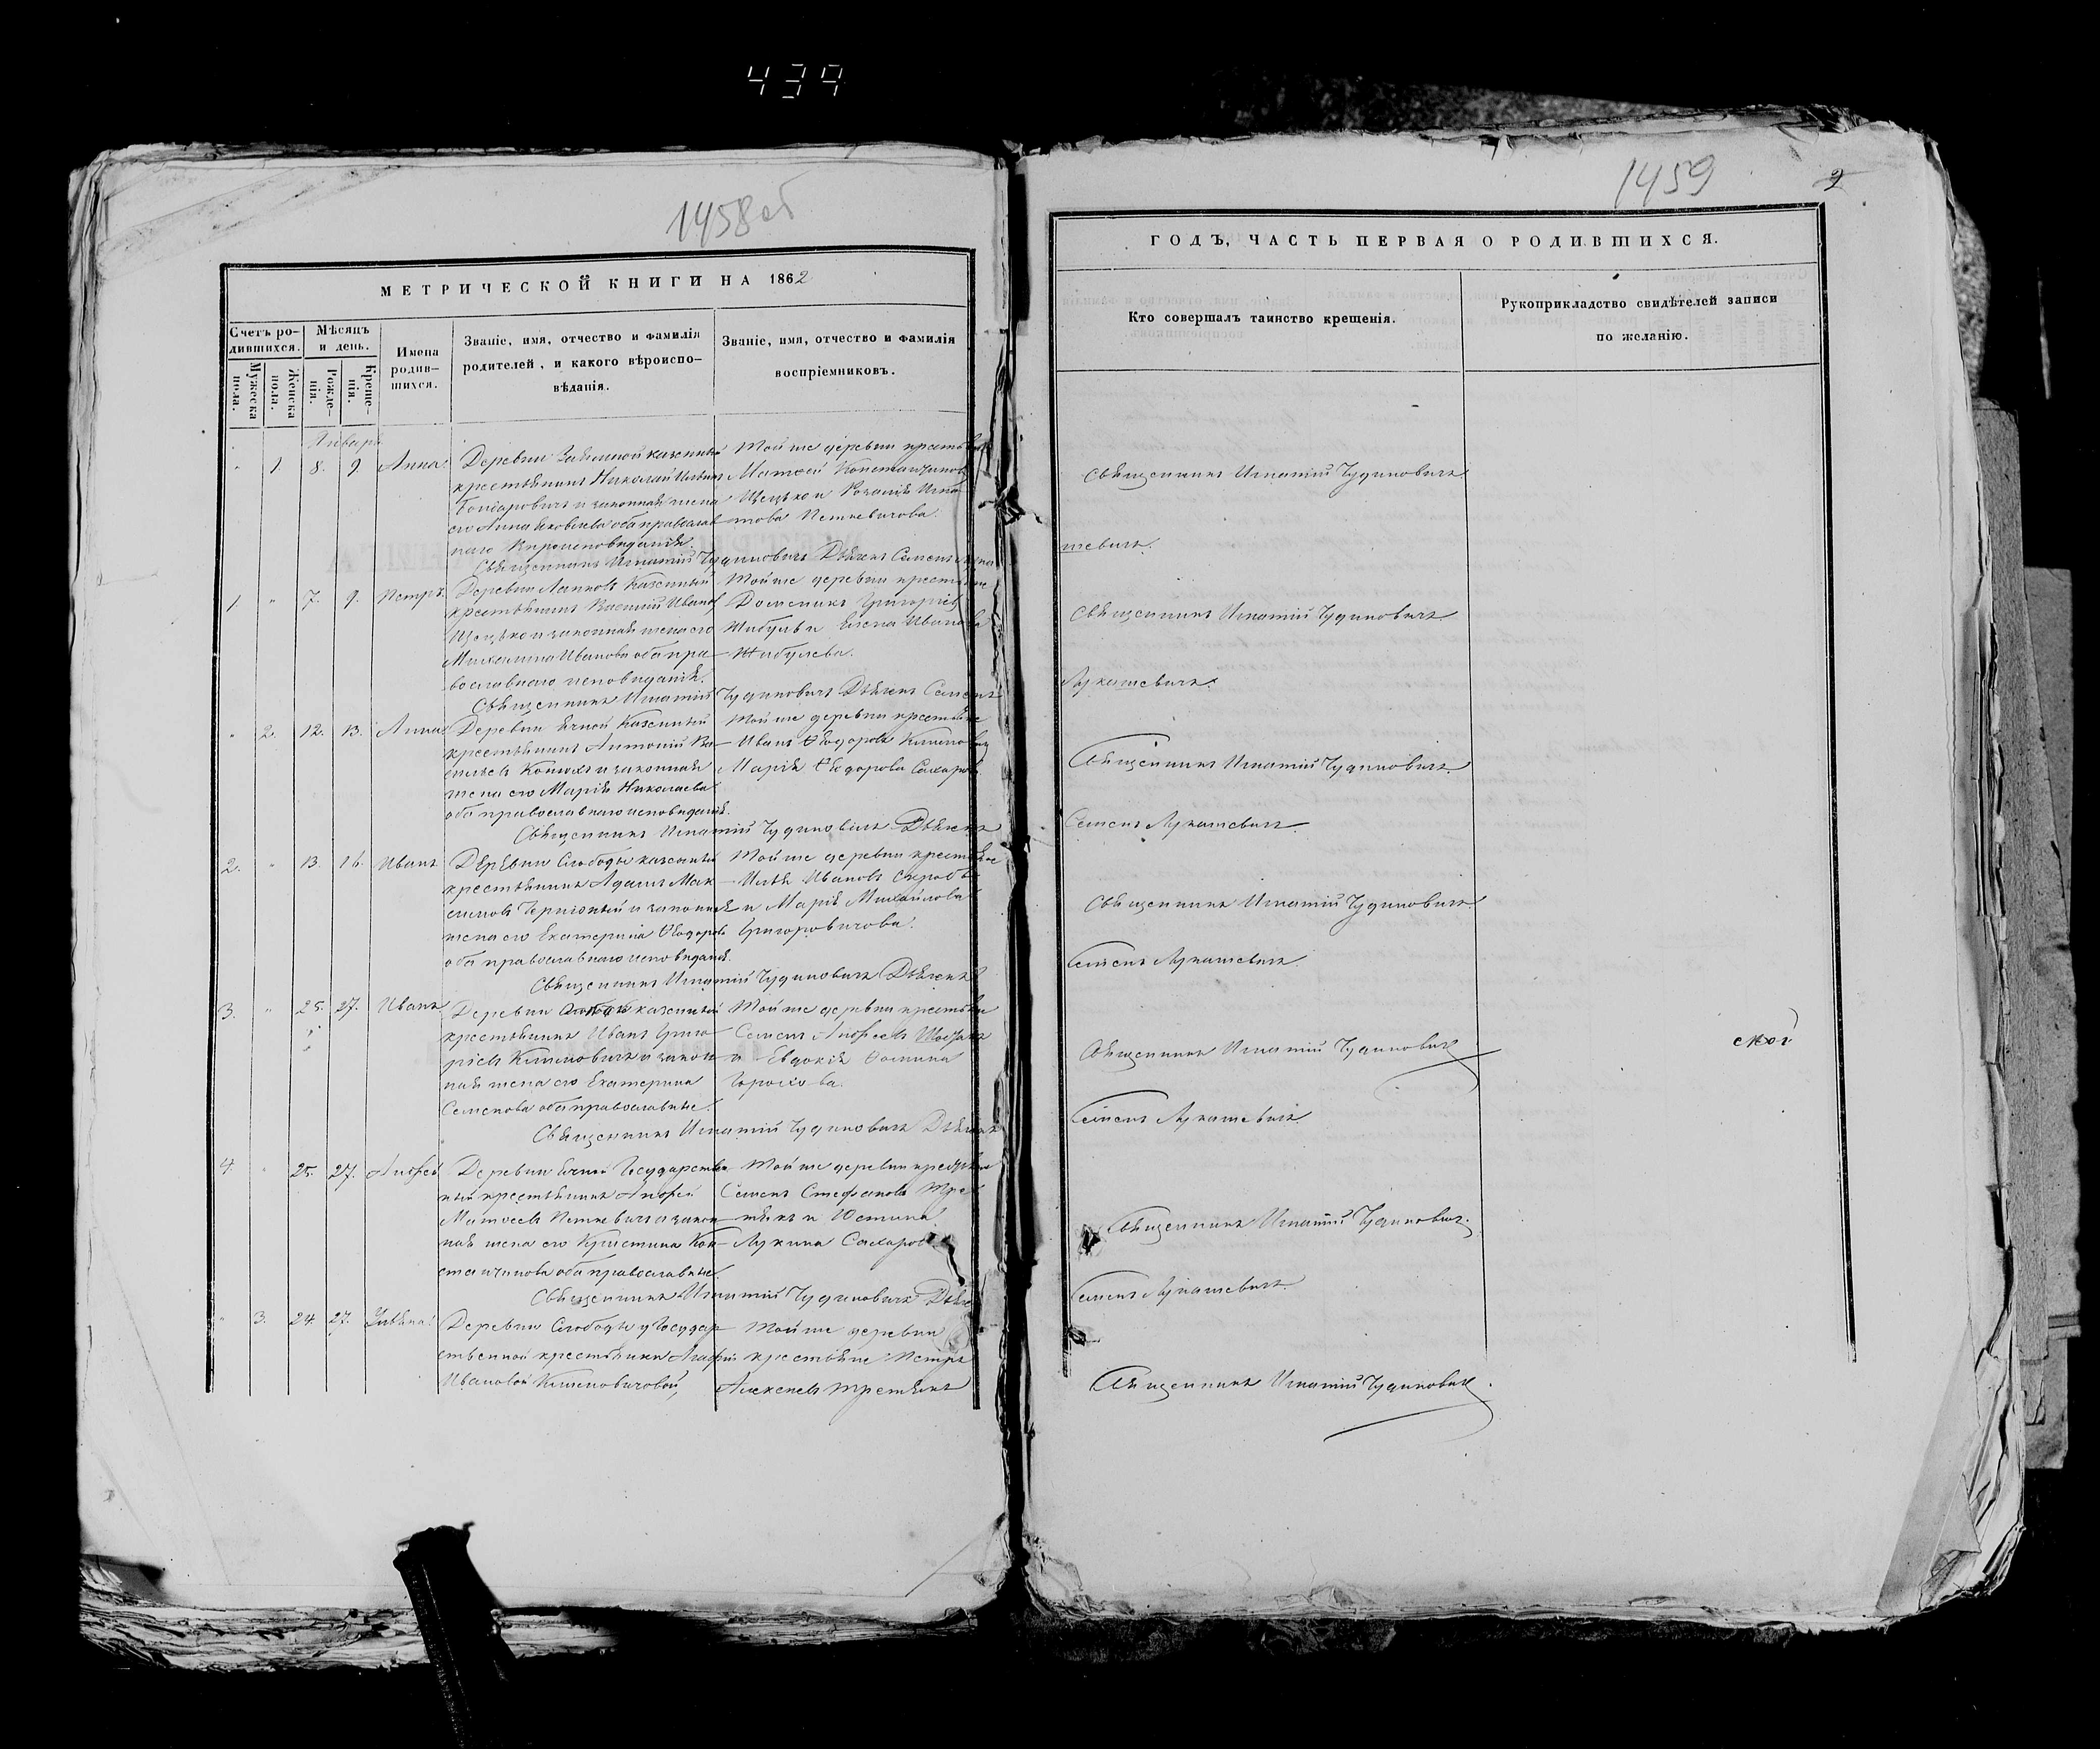 439
1458об
1459
2
МЕТРИЧЕСКОЙ КНИГИ НА 1862
ГОДЪ, ЧАСТЬ ПЕРВАЯ О РОДИВШИХСЯ.
Счетъ ро-
дившихся.
Мужеска
пола.
Женска
пола.
Мѣсяцъ
и день.
Рожде-
нія.
Креще-
нія.
Имена
родив-
шихся.
Званіе, имя, отчество и фамилія
родителей, и какого вѣроиспо-
вѣданія.
Званіе, имя, отчество и фамилія
воспріемниковъ.
Кто совершалъ таинство крещенія.
Рукоприкладство свидѣтелей записи
по желанію.
Январь
1. 8. 9. Анна
Деревни казенный
крестьянинъ Николай
и законная жена
его Анна Яковлева оба православ
наго Вѣроисповѣданія.
Той же деревни крестьяне
Матѳей Константиновъ
Щецько и Розалія Игна
това Петкевичова.
Священникъ Игнатій Чудиновичъ
Священникъ Игнатій Чудиновичъ Дьячекъ Семенъ Лука
шевичъ.
1. 7. 9. Петръ
Деревни казенный
крестьянинъ Василій Ивановъ
Щецько и законная жена его
Михалина Иванова оба пра-
вославнаго исповѣданія.
Той же деревни крестьяне
Доминикъ Григорьевъ
Жибуль и Елена Иванова
Жибулева.
Священникъ Игнатій Чудиновичъ
Священникъ Игнатій Чудиновичъ Дьячекъ Семенъ
Лукашевичъ.
2. 12. 13. Анна
Деревни Ячной Казенный
крестьянинъ Антоній Ва-
сильевъ и законная
жена его Марія Николаева
оба православнаго исповѣданія.
Той же деревни крестьяне
Иванъ Ѳеодоровъ
Марія Ѳеодорова Сахарова
Священникъ Игнатій Чудиновичъ
Священникъ Игнатій Чудиновичъ Дьячекъ
Семенъ Лукашевичъ.
2. 13. 16. Иванъ
Деревни Слободы казенный
крестьянинъ Адамъ Мак-
симовъ и законная
жена его Екатерина Ѳеодорова
оба православнаго исповѣданія.
Той же деревни крестьяне
Илья Ивановъ
и Марія Михайлова
Григоровичова.
Священникъ Игнатій Чудиновичъ
Священникъ Игнатій Чудиновичъ Дьячекъ
Семенъ Лукашевичъ.
3. 25. 27. Иванъ
Деревни Слободы казенный
крестьянинъ Иванъ Григо-
рьевъ Климовичъ и закон-
ная жена его Екатерина
Семенова оба православные.
Той же деревни крестьяне
Семенъ Андреевъ
и Евдокія Ѳомина
Горохова.
Священникъ Игнатій Чудиновичъ
Священникъ Игнатій Чудиновичъ Дьячекъ
Семенъ Лукашевичъ
4. 25. 27. Андрей
Деревни Ячной Государствен
ный крестьянинъ Андрей
Матѳеевъ Петкевичъ и закон-
ная жена его Кристина Кон-
стантинова оба православные.
Той же деревни крестьяне
Семенъ Стефановъ Трет
ьякъ и Юстина
Лукина Сахарова
Священникъ Игнатій Чудиновичъ.
Священникъ Игнатій Чудиновичъ Дьячекъ
Семенъ Лукашевичъ.
3. 24. 27.
Деревни Слободы у Государ-
ственной крестьянки Агафіи
Ивановой Климовичовой,
Той же деревни
крестьяне Петръ
Алексеевъ Третьякъ
Священникъ Игнатій Чудиновичъ.